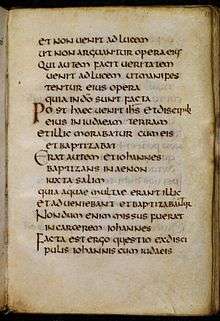 et non uenit ad lucem
ut non arguantur opera eius
Qui autem facit ueritatem
uenit ad lucem ut manifes
tentur eius opera
quia in dō sunt facta
Post haec uenit ihs et discipuli
eius in iudaeam terram
et illic morabatur cum eis
et baptizabat
Erat autem et iohannes
baptizans in aenon
iuxta salim
quia aquae multae erant illic
et adueniebant et baptizabantur
Nondum enim missus fuerat
in carcerem iohannes
Facta est ergo questio ex disci
pulis iohannis cum iudaeis